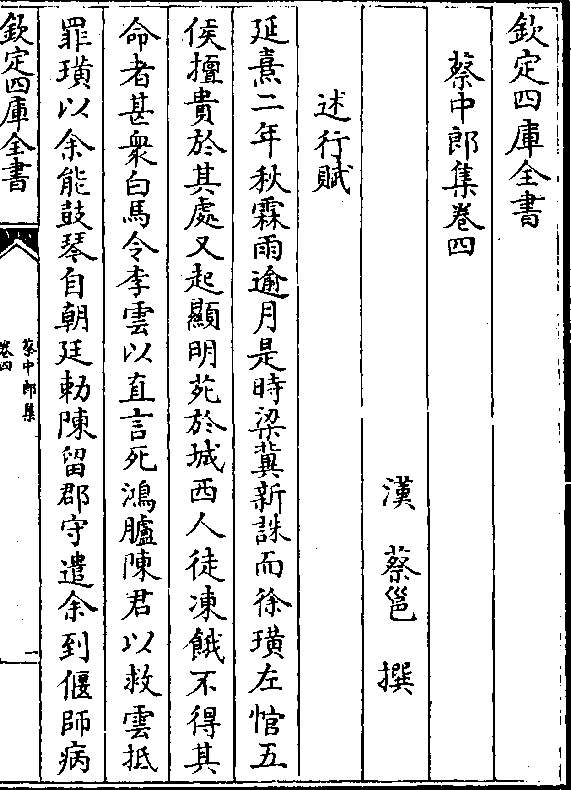 欽定四庫全書
蔡中郎集卷四
漢 蔡邕 撰
述行賦
延熹二年秋霖雨逾月是時梁冀新誅而徐璜左悺五
侯擅貴於其處又起顯明苑於城西人徒凍餓不得其
命者甚衆白馬令李雲以直言死鴻臚陳君以救雲抵
罪璜以余能鼓琴自朝廷勅陳留郡守遣余到偃師病
欽定四庫全書
蔡中郎集
卷四
一